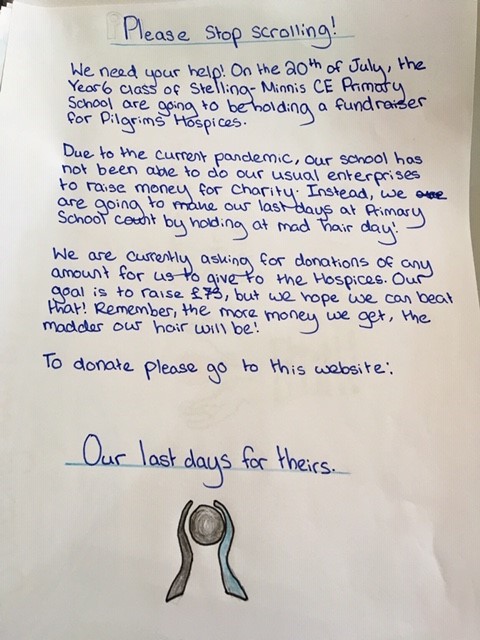 Please stop scrolling!
We need your help! On the 20th of July, the
Year 6 class of Stelling-Minnis CE Primary
School are going to be holding a fundraiser
for Pilgrims Hospices.
Due to the current pandemic, our school has
not been able to do our usual enterprises
to raise money for charity. Instead, we
are going to make our last days at Primary
School count by holding at mad hair day!
We are currently asking for donations of any
amount for us to give to the Hospices. Our
goal is to raise £75, but we hope we can beat
that! Remember, the more money we get, the
madder our hair will be!
To donate please go to this website:
Our last days for theirs.